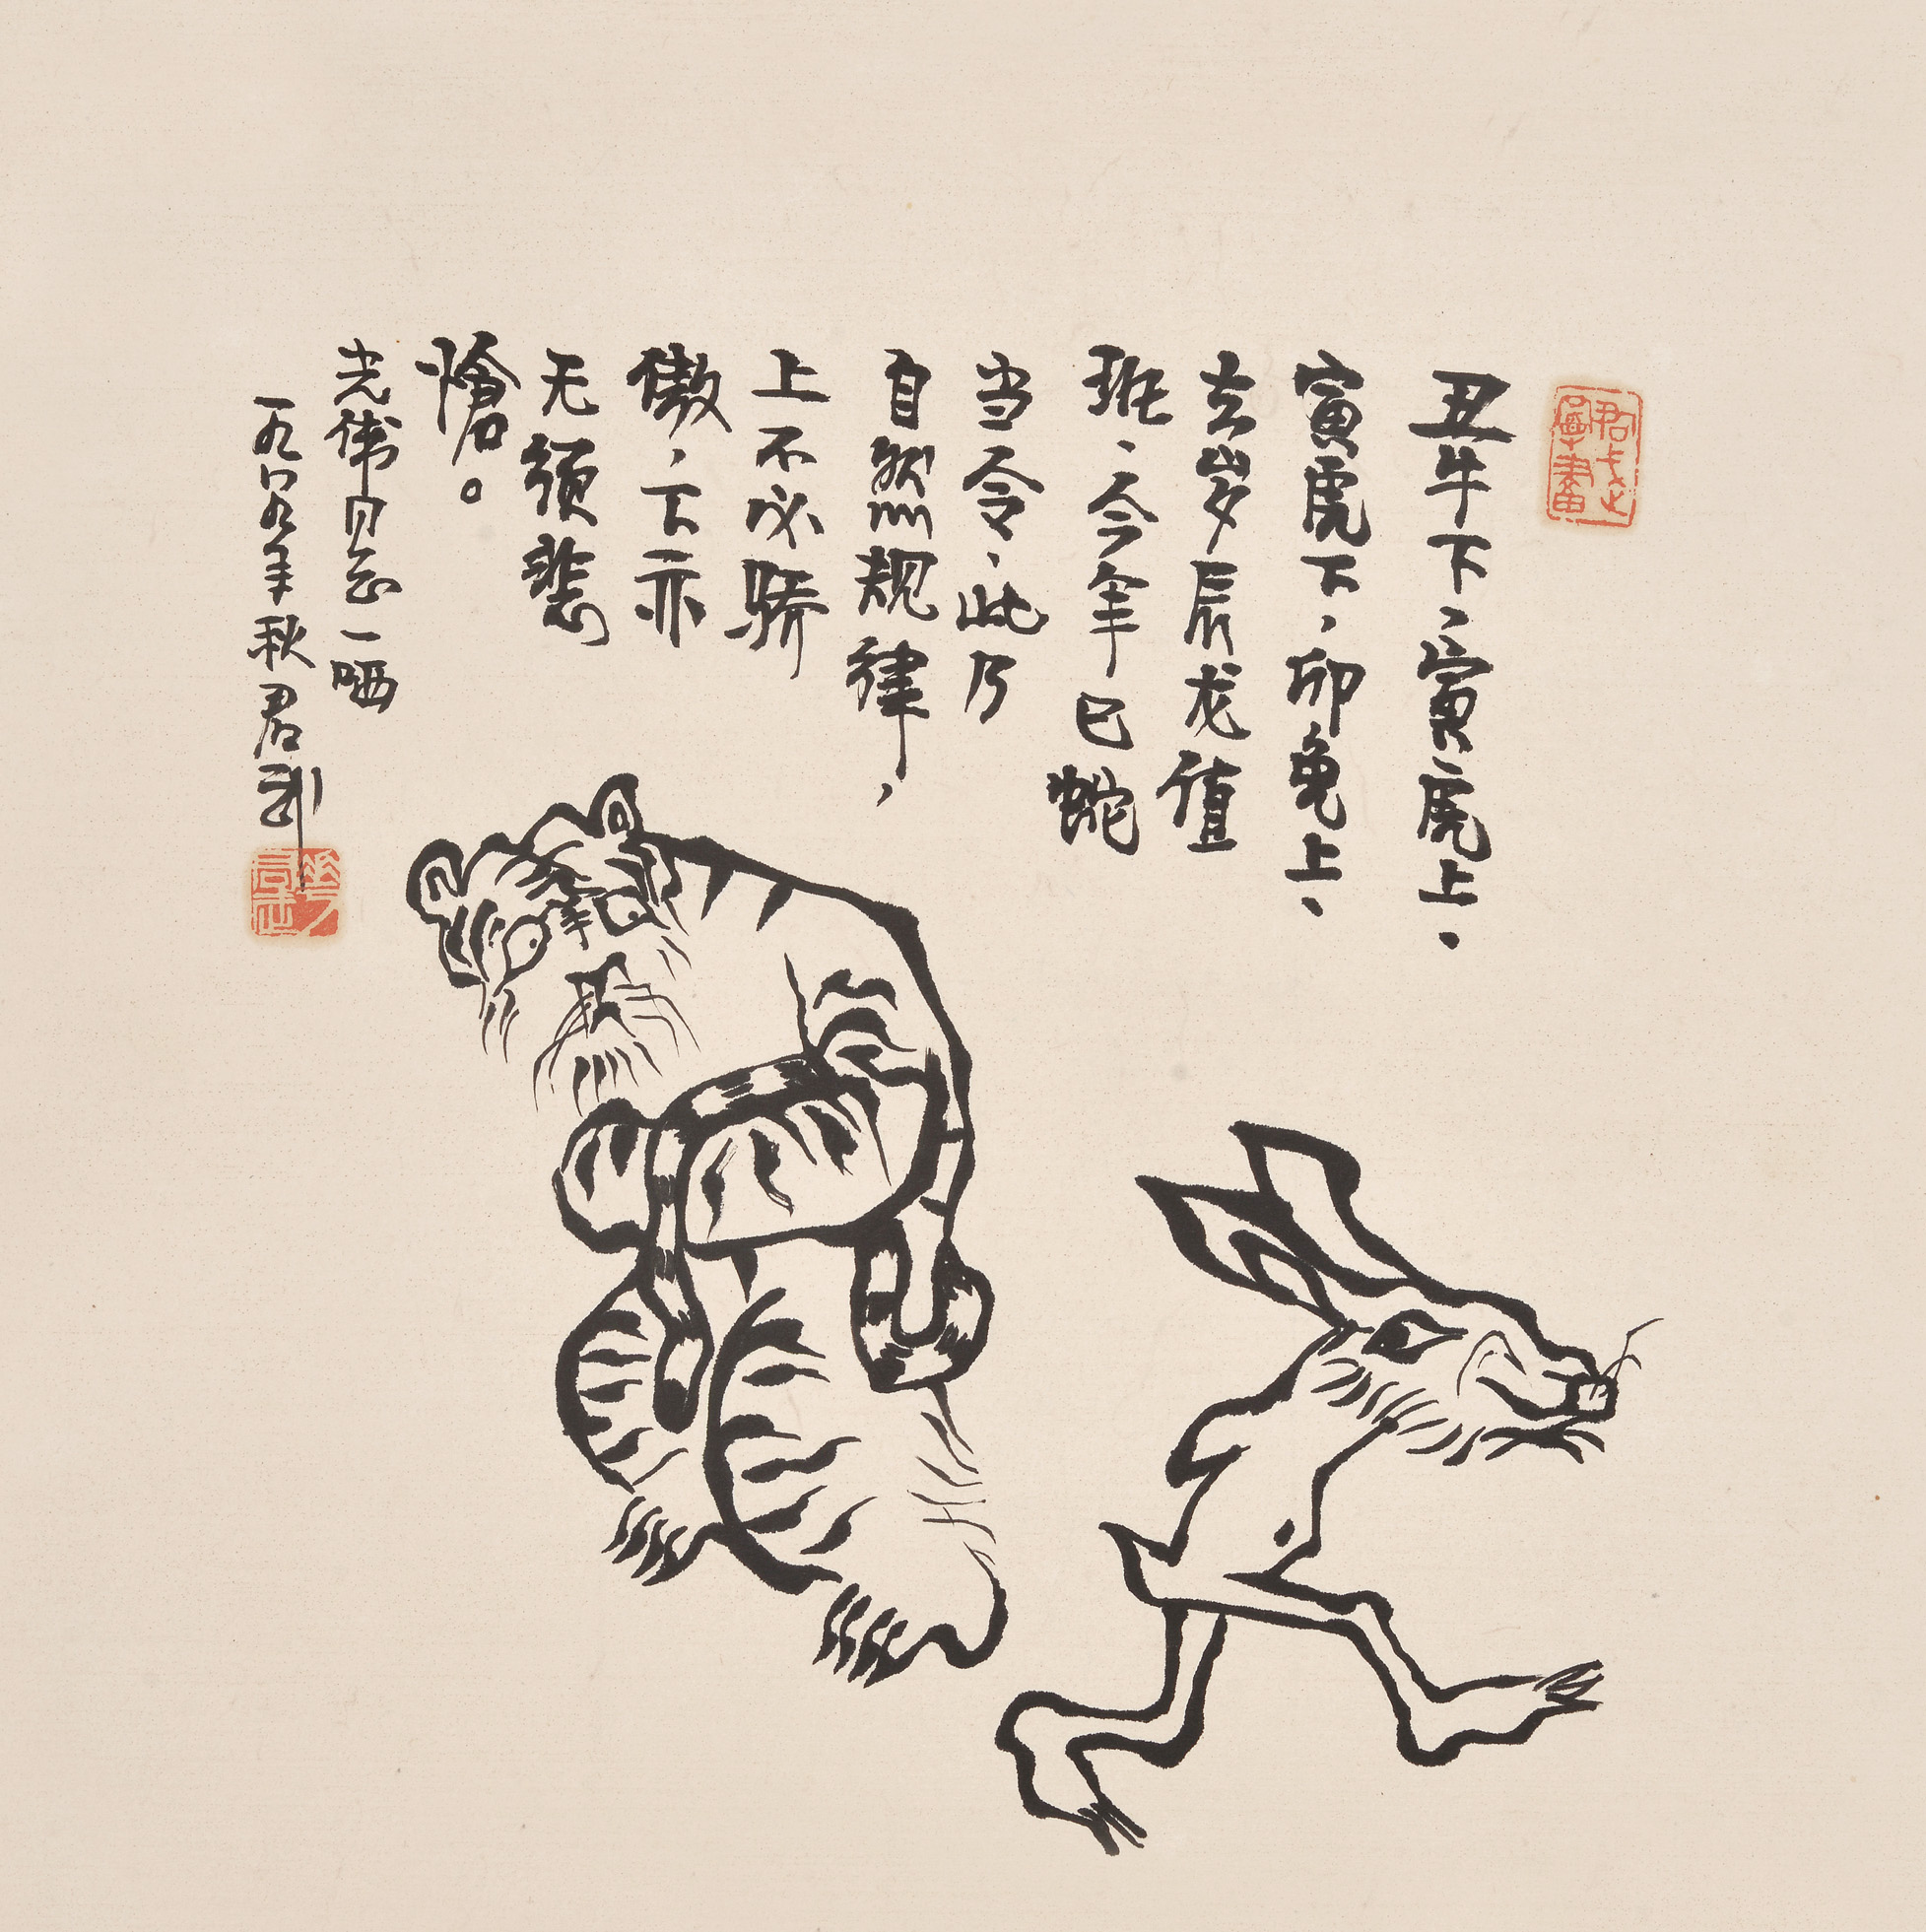 丑牛下、寅虎上、
寅虎下、卯兔上、
去岁辰龙值
班、今年巳蛇
当令、此乃
自然规律，
上不必骄
傲、下亦
无须悲
愴。
光伟同志一哂
一九八九年秋君武